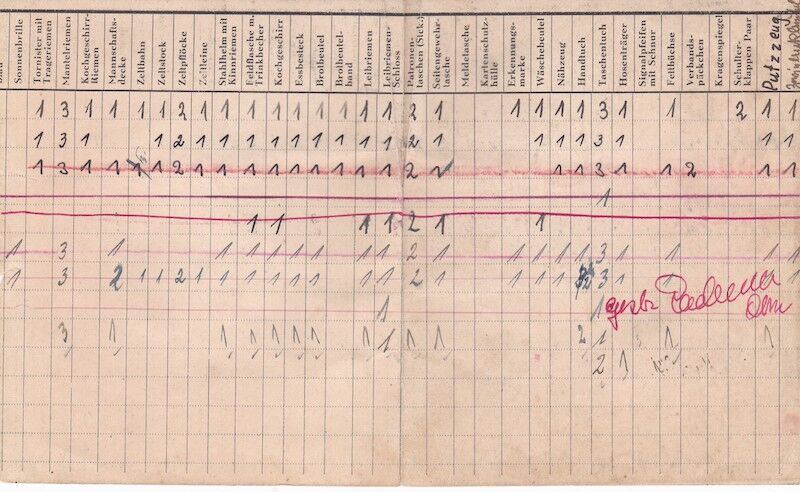 Sonnenbrille
Tornister mit
Trageriemen
Mantelriemen
Kochgeschirr-
Riemen
Mannschafts-
decke
Zeltbahn
Zeltstock
Zeltpflöcke
Zeltleine
Stahlhelm mit
Kinnriemen
Feldflasche m.
Trinkbecher
Kochgeschirr
Essbesteck
Brotbeutel
Brotbeutel-
band
Leibriemen
Leibriemen-
Schloss
Patronen-
taschen (Stck.)
Seitengewehr-
tasche
Meldetasche
Kartenschutz-
hülle
Erkennungs-
marke
Wäschebeutel
Nähzeug
Handtuch
Taschentuch
Hosenträger
Signalpfeifen
mit Schnur
Fettbüchse
Verbands-
päckchen
Kragenspiegel
Schulter-
klappen Paar
Putzzeug
1 3 1 1 1 1 2 1 1 1 1 1 1 1 1 1 2 1 1 1 1 1 1 1 1 2 1 1
1 3 1 1 2 1 1 1 1 1 1 1 1 1 2 1 1 1 1 3 1 1 1
1 3 1 1 1 1 2 1 1 1 1 1 1 1 1 1 2 1 1 1 3 1 1 2 1 1
1
1 1 1 1 2 1 1
1 3 1 1 1 1 1 1 1 1 2 1 1 1 1 1 3 1 1 1 1
1 3 2 1 1 2 1 1 1 1 1 1 1 1 2 1 1 1 1 2 3 1 1 1
1 1
3 1 1 1 1 1 1 1 1 2 1 1 1
2 1